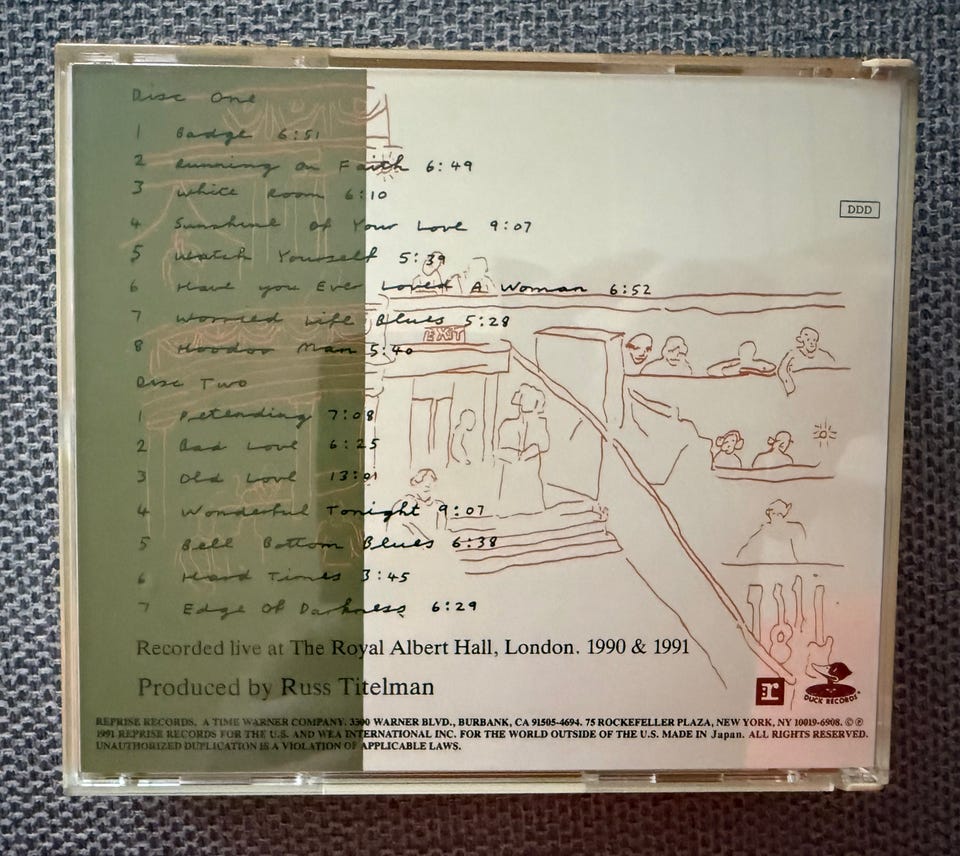 Disc One
1 Badge 6:51
2 Running On Faith 6:49
3 White Room 6:10
4 Sunshine Of Your Love 9:07
5 Watch Yourself 5:39
6 Have you Ever Loved A Woman 6:52
7 Worried Life Blues 5:28
8 Hoodoo Man 5:40
Disc Two
1 Petending 7:08
2 Bad Love 6:25
3 Old Love 13:01
4 Wonderful Tonight 9:07
5 Bell Bottom Blues 6:38
6 Hard Times 3:45
7 Edge Of Darkness 6:29
DDD
EXIT
Recorded live at The Royal Albert Hall, London. 1990 & 1991
Produced by Russ Titelman
r
DUCK RECORDS
REPRISE RECORDS, A TIME WARNER COMPANY. 3300 WARNER BLVD., BURBANK, CA 91505-4694. 75 ROCKEFELLER PLAZA, NEW YORK, NY 10019-6908. ©℗
1991 REPRISE RECORDS FOR THE U.S. AND WEA INTERNATIONAL INC. FOR THE WORLD OUTSIDE OF THE U.S. MADE IN Japan. ALL RIGHTS RESERVED.
UNAUTHORIZED DUPLICATION IS A VIOLATION OF APPLICABLE LAWS.